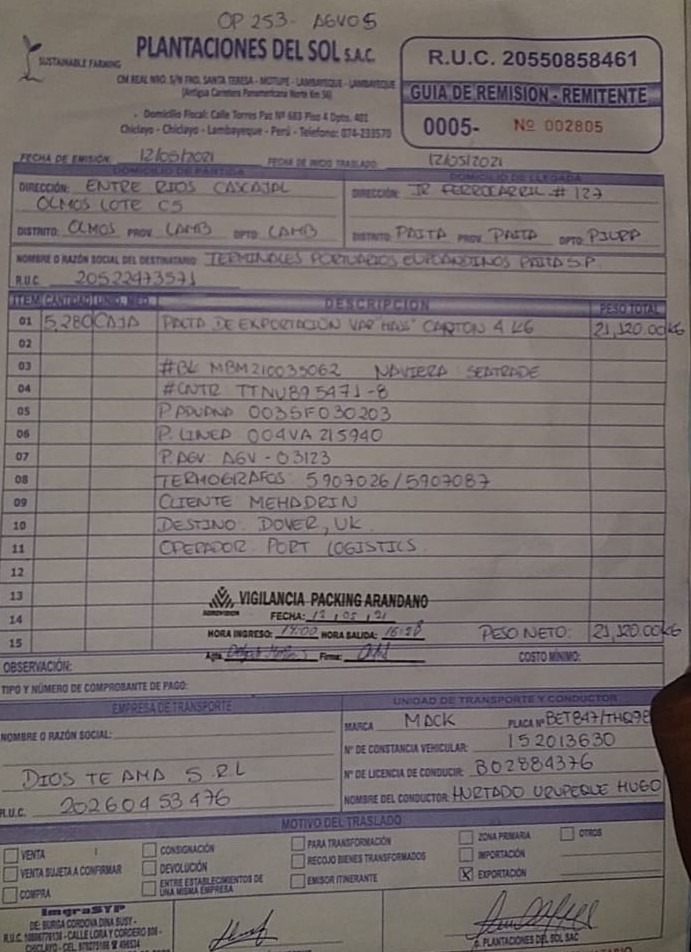 OP 253- AGVOS
SUSTAINABLE FARMING
PLANTACIONES DEL SOL S.A.C.
CM REAL NRO. S/N FND. SANTA TERESA - MOTUPE - LAMBAYEQUE - LAMBAYEQUE
(Antigua Carretera Panamericana Norte Km 56)
Domicilio Fiscal: Calle Torres Paz Nº 683 Piso 4 Dpto. 401
Chiclayo - Chiclayo - Lambayeque - Perú - Telefono: 074-233570
R.U.C. 20550858461
GUIA DE REMISION - REMITENTE
0005- Nº 002805
FECHA DE EMISIÓN: 12/05/2021 FECHA DE INICIO TRASLADO: 12/05/2021
DOMICILIO DE PARTIDA DOMICILIO DE LLEGADA
DIRECCIÓN: ENTRE RIOS CASCAJAL DIRECCIÓN: JR FERROCARRIL # 127
OLMOS LOTE C5
DISTRITO: OLMOS PROV. LAMB DPTO: LAMB DISTRITO: PAITA PROV. PAITA DPTO: PIURA
NOMBRE O RAZÓN SOCIAL DEL DESTINATARIO TERMINALES PORTUARIOS EUROANDINOS PAITA S.P.
R.U.C. 20522473571
ITEM CANTIDAD UNID. MED. DESCRIPCION PESO TOTAL
01 5,280 CAJA PALTA DE EXPORTACIÓN VAR "HASS" CARTON 4 KG 21,120.00KG
02
03 #BL MBM210035062 NAVIERA SEATRADE
04 #CNTR TTNU895471-8
05 P. ADUANA 0035F030203
06 P. LINEA 004VA 215940
07 P. AGV AGV-03123
08 TERMOGRAFOS: 5907026/5907087
09 CLIENTE MEHADRIN
10 DESTINO: DOVER, UK
11 OPERADOR: PORT LOGISTICS
12
13 VIGILANCIA PACKING ARANDANO
14 FECHA: 12, 05, 21
HORA INGRESO: 14:00 HORA SALIDA: PESO NETO: 21,120.00KG
15 Firma: COSTO MÍNIMO:
OBSERVACIÓN:
TIPO Y NÚMERO DE COMPROBANTE DE PAGO:
EMPRESA DE TRANSPORTE UNIDAD DE TRANSPORTE Y CONDUCTOR
NOMBRE O RAZÓN SOCIAL: MARCA MACK PLACA Nº BET847/THQ98
Nº DE CONSTANCIA VEHICULAR: 152013630
DIOS TE AMA S.R.L Nº DE LICENCIA DE CONDUCIR: B02884376
R.U.C. 20260453476 NOMBRE DEL CONDUCTOR: HURTADO URUPEQUE HUGO
MOTIVO DEL TRASLADO
VENTA CONSIGNACIÓN PARA TRANSFORMACIÓN ZONA PRIMARIA OTROS
VENTA SUJETA A CONFIRMAR DEVOLUCIÓN RECOJO BIENES TRANSFORMADOS IMPORTACIÓN
COMPRA ENTRE ESTABLECIMIENTOS DE EMISOR ITINERANTE X EXPORTACIÓN
UNA MISMA EMPRESA
ImgraSYP
DE: BURGA CORDOVA DINA SUSY -
CALLE LORA Y CORDERO
CHICLAYO - CEL.
P. PLANTACIONES DEL SOL SAC